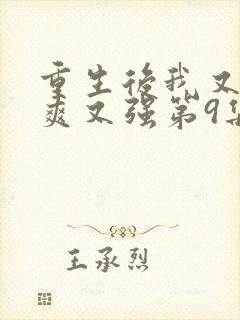 重生後我又
爽又强第9集
王承烈